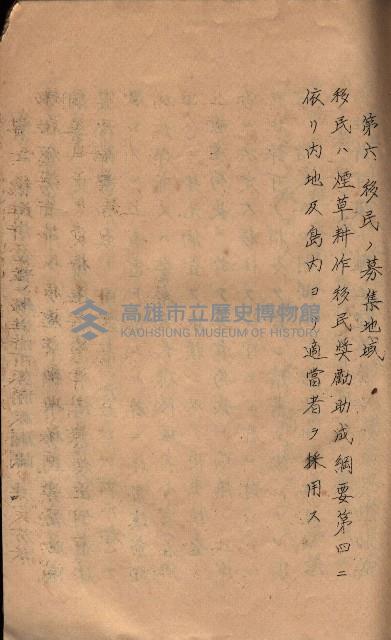 第六、移民ノ募集地域
移民ハ煙草耕作移民奨勵助成綱要第四ニ
依リ内地及島内ヨリ適當者ヲ採用ス
高雄市立歷史博物館
KAOHSIUNG MUSEUM OF HISTORY